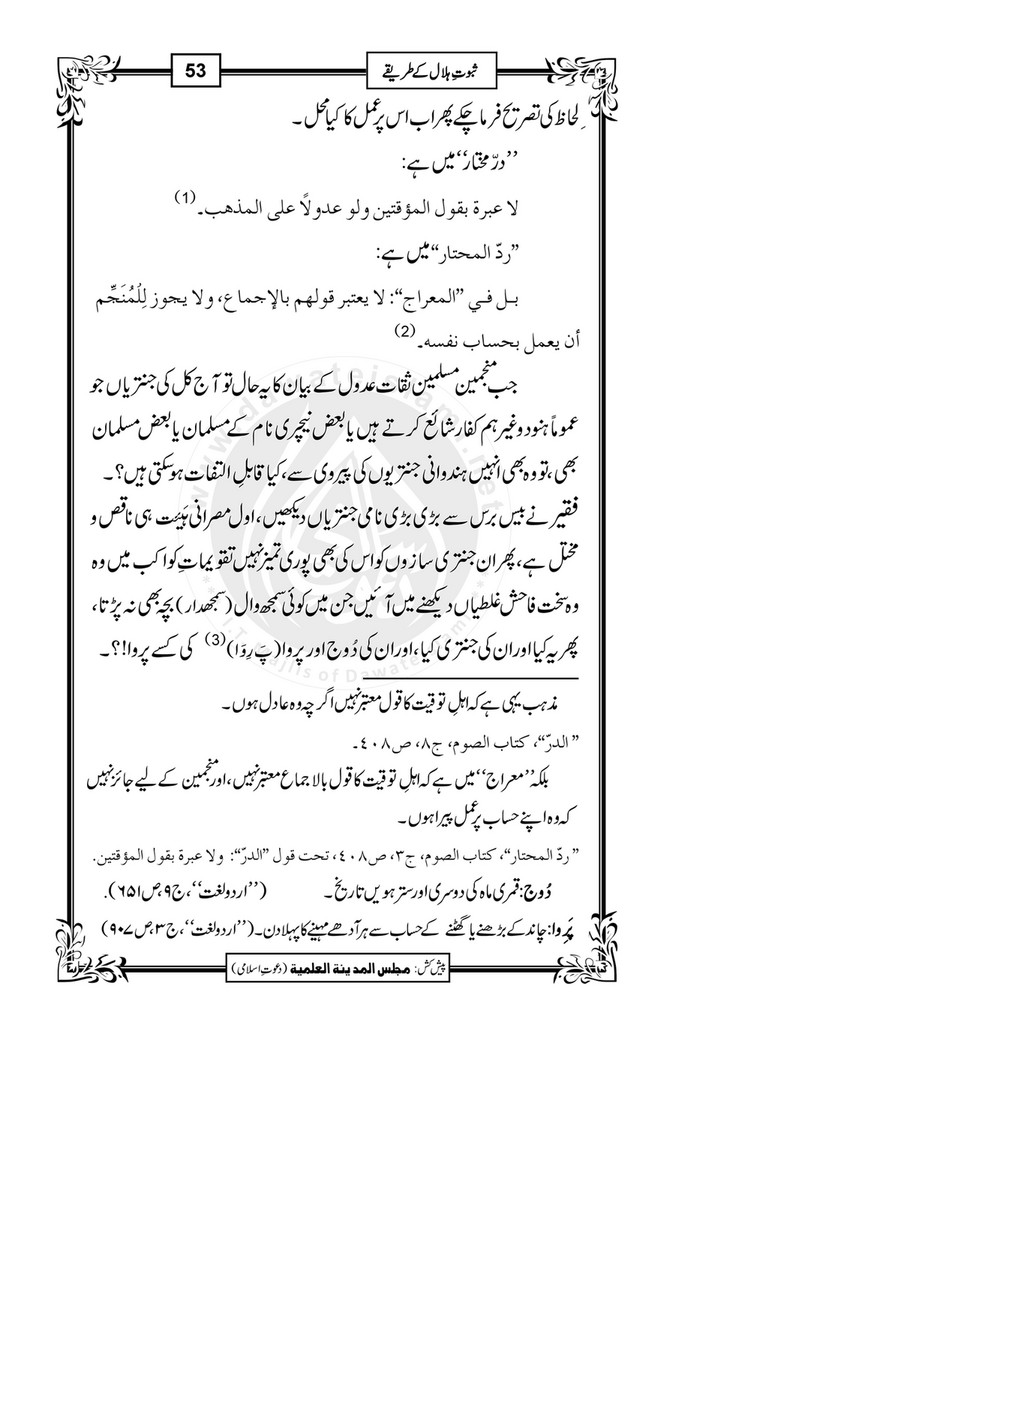 ثبوتِ ہلال کے طریقے
53
لحاظ کی تصریح فرماچکے پھر اب اس پر عمل کا کیا محل۔
’’درّ مختار‘‘ میں ہے:
لا عبرة بقول المؤقتين ولو عدولاً على المذهب۔(1)
”ردّ المحتار“ میں ہے:
بل في ”المعراج“: لا يعتبر قولهم بالإجماع، ولا يجوز لِلْمُنَجِّم
أن يعمل بحساب نفسه۔(2)
جب منجمین مسلمین ثقات عدول کے بیان کا یہ حال تو آج کل کی جنتریاں جو
عموماً ہنود وغیرہم کفار شائع کرتے ہیں یا بعض نیچری نام کے مسلمان یا بعض مسلمان
بھی، تو وہ بھی انہیں ہندوانی جنتریوں کی پیروی سے، کیا قابلِ التفات ہوسکتی ہیں؟۔
فقیر نے بیس برس سے بڑی بڑی نامی جنتریاں دیکھیں، اول مصرانی ہَیئت ہی ناقص و
مختل ہے، پھر ان جنتری سازوں کو اس کی بھی پوری تمیز نہیں تقویماتِ کواکب میں وہ
وہ سخت فاحش غلطیاں دیکھنے میں آئیں جن میں کوئی سمجھ وال (سمجھدار) بچہ بھی نہ پڑتا،
پھر یہ کیا اور ان کی جنتری کیا، اور ان کی دُوج اور پروا (پَ رِوَا)(3) کی کسے پروا!؟۔
مذہب یہی ہے کہ اہلِ توقیت کا قول معتبر نہیں اگرچہ وہ عادل ہوں۔
”الدرّ“، كتاب الصوم، ج٨، ص٤٠٨۔
بلکہ ’’معراج‘‘ میں ہے کہ اہلِ توقیت کا قول بالاجماع معتبر نہیں، اور منجمین کے لیے جائز نہیں
کہ وہ اپنے حساب پر عمل پیرا ہوں۔
”ردّ المحتار“، كتاب الصوم، ج٣، ص٤٠٨، تحت قول ”الدرّ“: ولا عبرة بقول المؤقتين.
دُوج: قمری ماہ کی دوسری اور سترہویں تاریخ۔ (’’اردو لغت‘‘، ج۹، ص۶۵۱).
پَرِوا: چاند کے بڑھنے یا گھٹنے کے حساب سے ہر آدھے مہینے کا پہلا دن۔ (’’اردو لغت‘‘، ج۳، ص۹۰۷)
پیش کش: مجلس المدینۃ العلمیۃ (دعوتِ اسلامی)
www.dawateislami.net
I.T. Majlis of DawateIslami